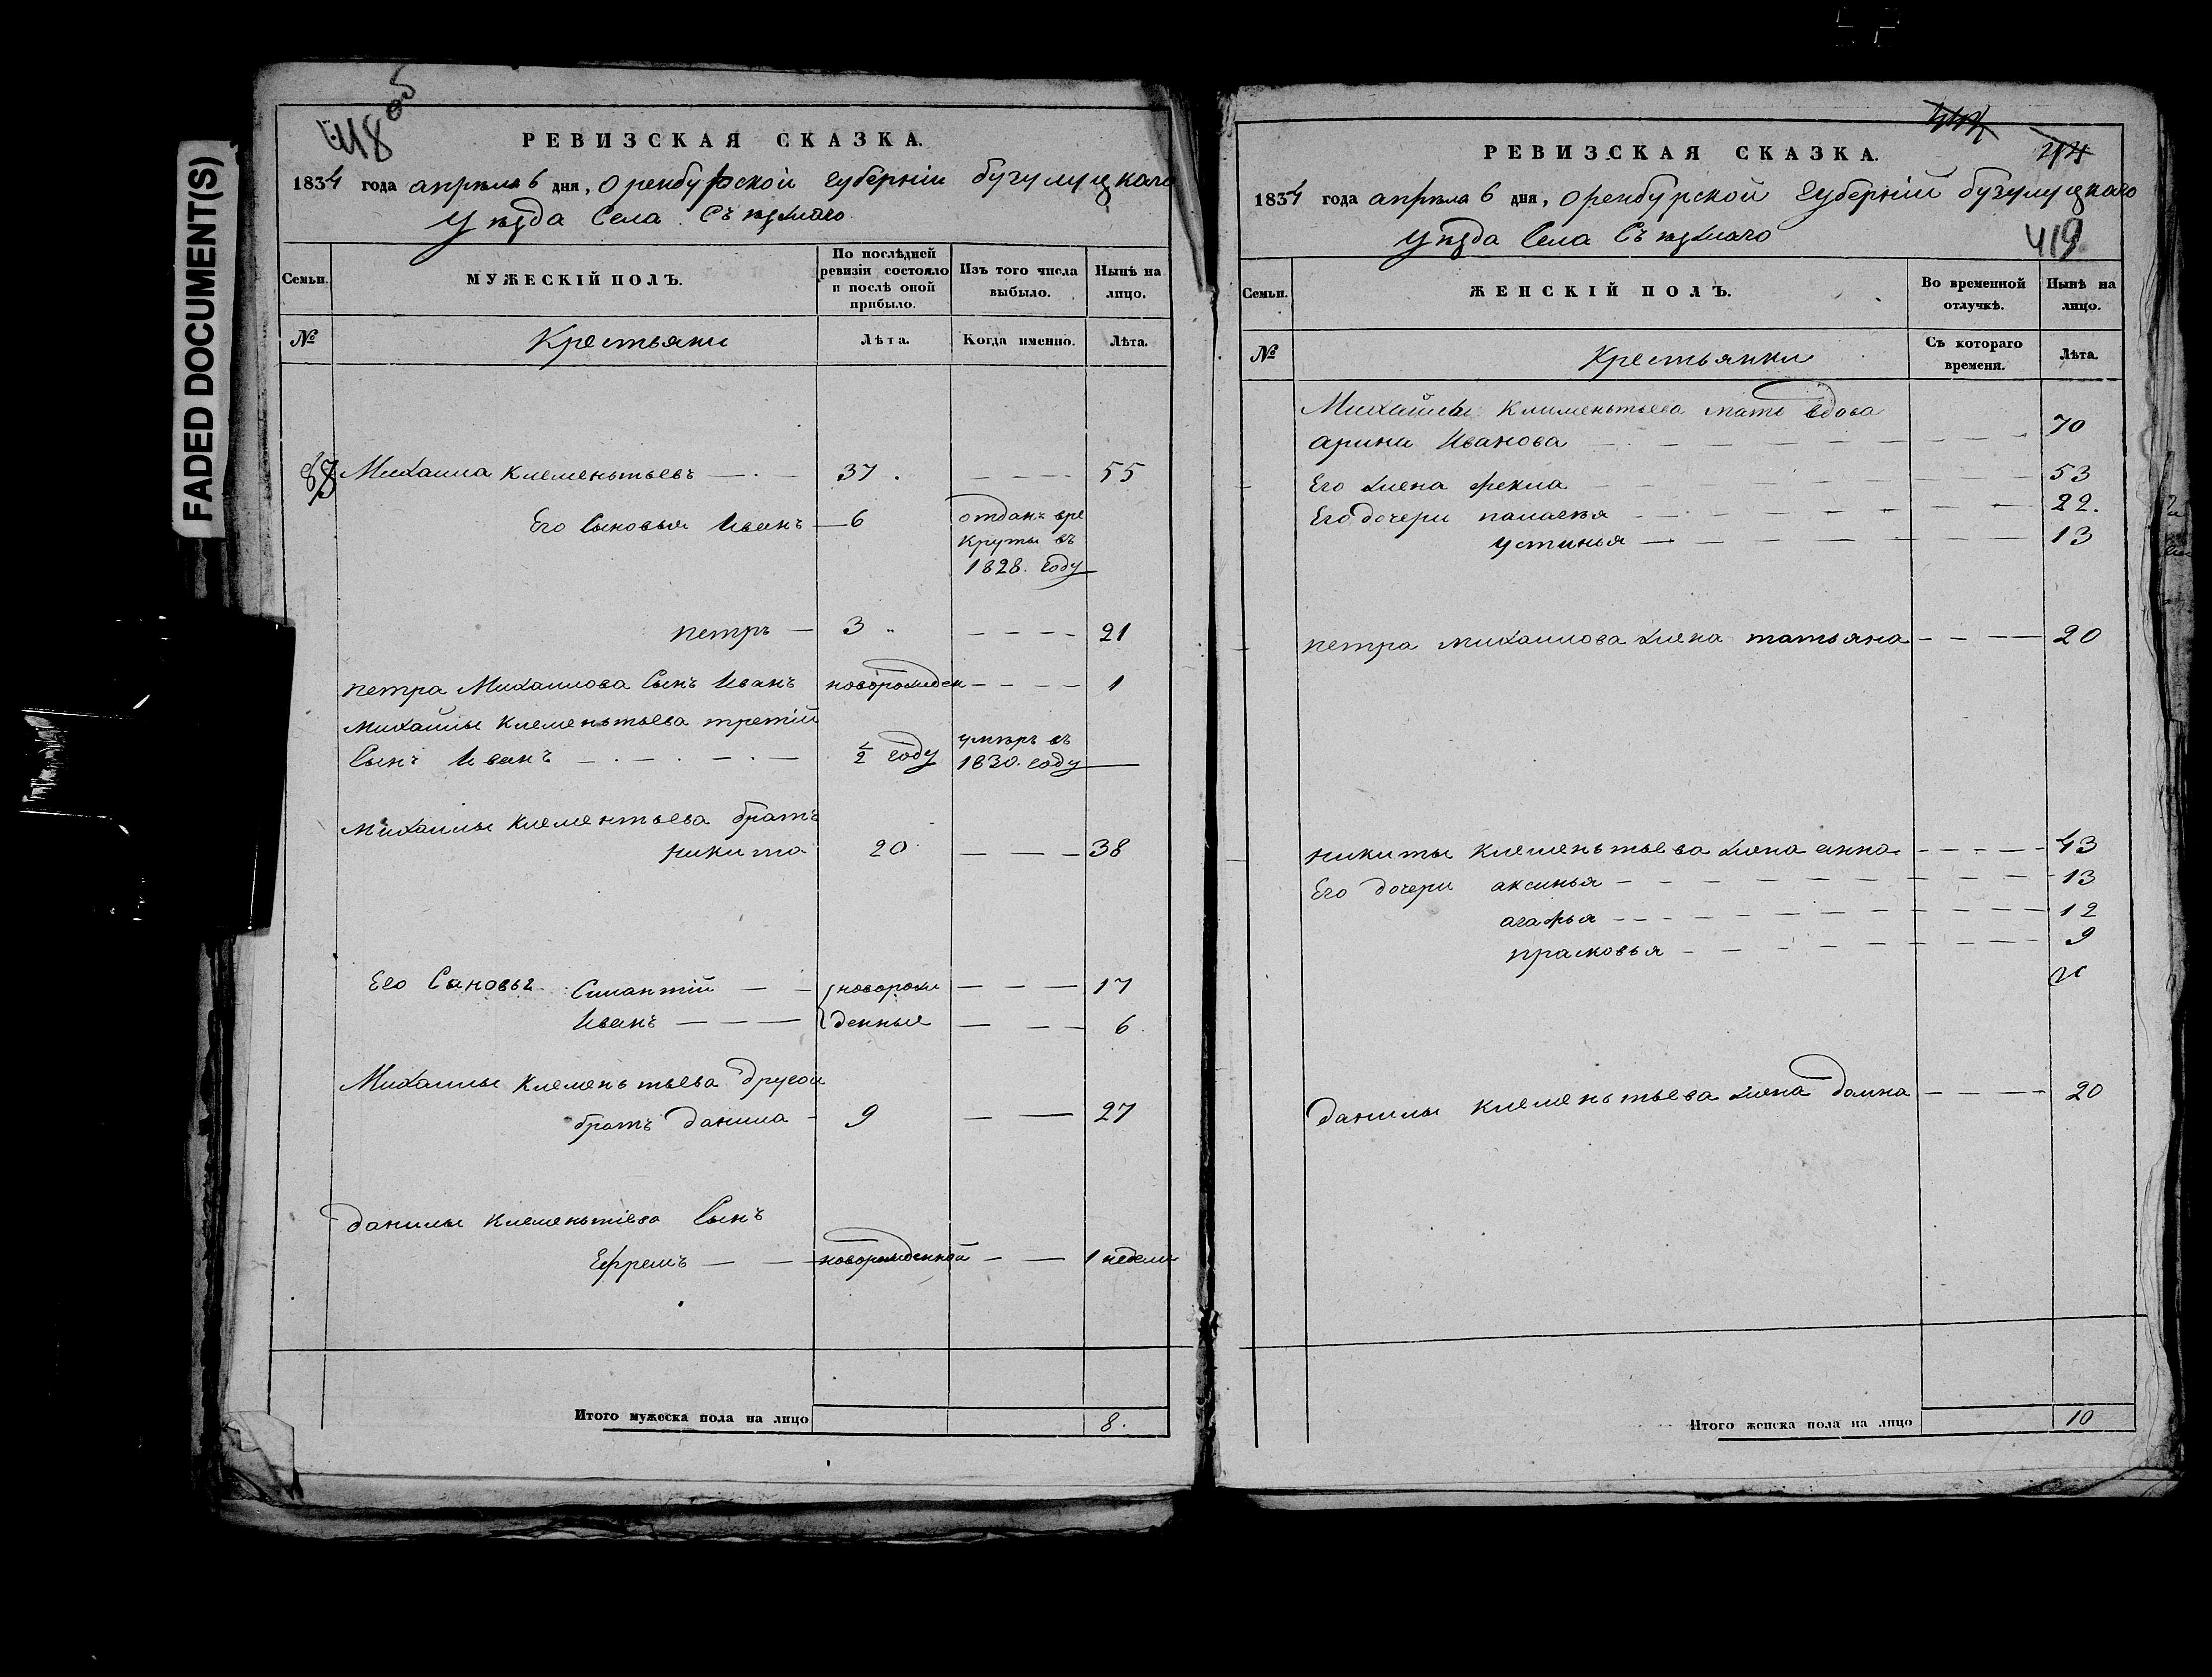 FADED DOCUMENT(S)
418 об
РЕВИЗСКАЯ СКАЗКА.
1834 года апреля 6 дня, Оренбургской губерніи бугулуцкаго
уѣзда Села Съѣзжаго
Семьи.
МУЖЕСКІЙ ПОЛЪ.
По послѣдней ревизіи состояло и послѣ оной прибыло.
Изъ того числа выбыло.
Нынѣ на лицо.
№
Крестьяни
Лѣта.
Когда именно.
Лѣта.
87 Михаила Клеменьтьевъ 37. 55
Его Сыновья Иванъ 6 отданъ вре
круты въ
1828. году
петръ 3 21
петра Михаилова Сынъ Иванъ новорожден 1
Михайлы Клеменьтьева третій
Сынъ Иванъ ½ году умѣръ въ
1830. году
Михаилы Клементьева братъ
никита 20 38
Его Сыновья Силантій новорож 17
Иванъ денные 6
Михаилы Клеменьтьева другои
братъ данила 9 27
данилы Клеменьтіева Сынъ
Ефремъ новорожденной 1 недели
Итого мужеска пола на лицо 8.
РЕВИЗСКАЯ СКАЗКА.
1834 года апреля 6 дня, Оренбурской Губерній бузулуцкаго
уѣзда Села Съѣзжаго
419
Семьи.
ЖЕНСКІЙ ПОЛЪ.
Во временной отлучкѣ.
Нынѣ на лицо.
№
Крестьянки
Съ котораго времени.
Лѣта.
Михайлы Клименьтьева мать вдова
арина Иванова 70
Его жена фекла 53
Его дочери палагѣя 22.
устинья 13
петра михаилова жена татьяна 20
никиты Клеменьтьева жена анна 43
Его дочери аксинья 13
агафья 12
прасковья 9
данилы Клеменьтьева жена домна 20
Итого женска пола на лицо 10